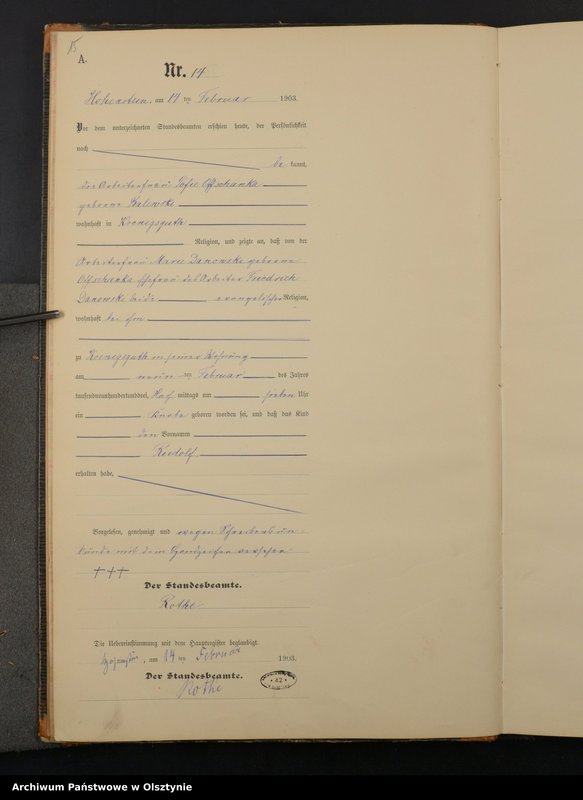 15
A.
Nr. 14
Hohenstein, am 14 ten Februar 1903.
Vor dem unterzeichneten Standesbeamten erschien heute, der Persönlichkeit
nach
be kannt,
die Arbeiterfrau Sofie Offschanka
geborene
wohnhaft in Koenigsguth
Religion, und zeigte an, daß von der
Arbeiterfrau Marie Danowski geborene
Offschanka Ehefrau des Arbeiter Friedrich
Danowski beide evangelischer Religion,
wohnhaft bei ihm
zu Koenigsguth in seiner Wohnung
am neun ten Februar des Jahres
tausendneunhundertunddrei, Nach mittags um sieben Uhr
ein Knabe geboren worden sei, und daß das Kind
den Vornamen
Rudolf
erhalten habe,
Vorgelesen, genehmigt und wegen Schreibensun-
kunde mit dem Handzeichen versehen
+++
Der Standesbeamte.
Rothe
Die Uebereinstimmung mit dem Hauptregister beglaubigt.
Hohenstein, am 14 ten Februar 1903.
Der Standesbeamte.
Rothe
42
Archiwum Państwowe w Olsztynie